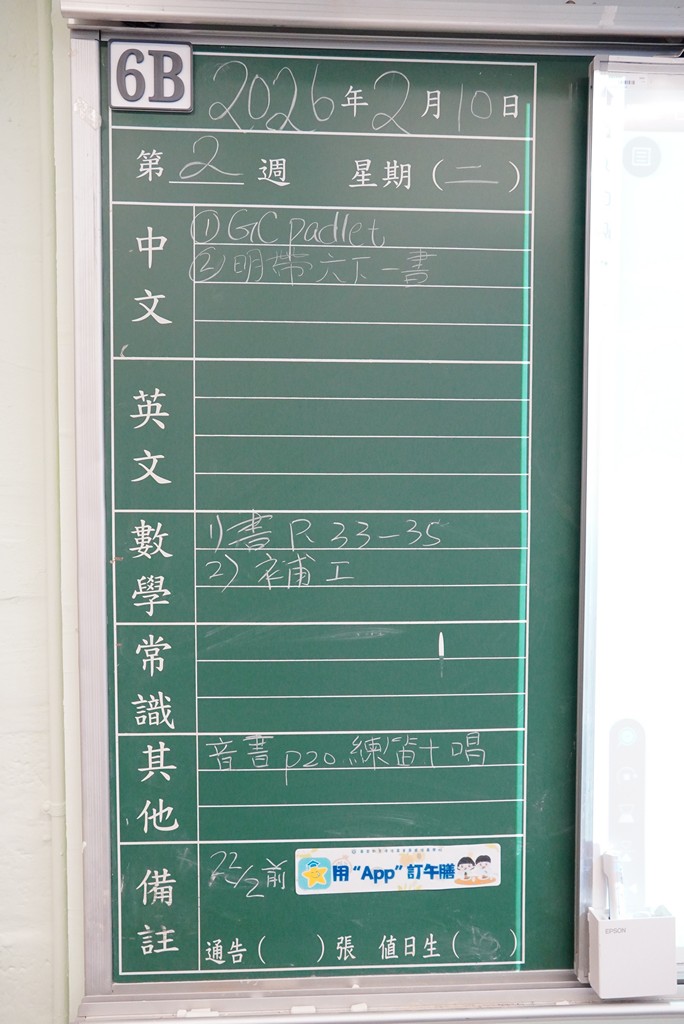 6B 2026年2月10日
第 2 週 星期（二）
中文
① GC padlet
② 明帶六下一書
英文
數學
1) 書 P. 33-35
2) 補工
常識
其他
音書 p20 練笛+唱
備註
22/2前
用“App”訂午膳
通告（ ）張 值日生（ ）
EPSON